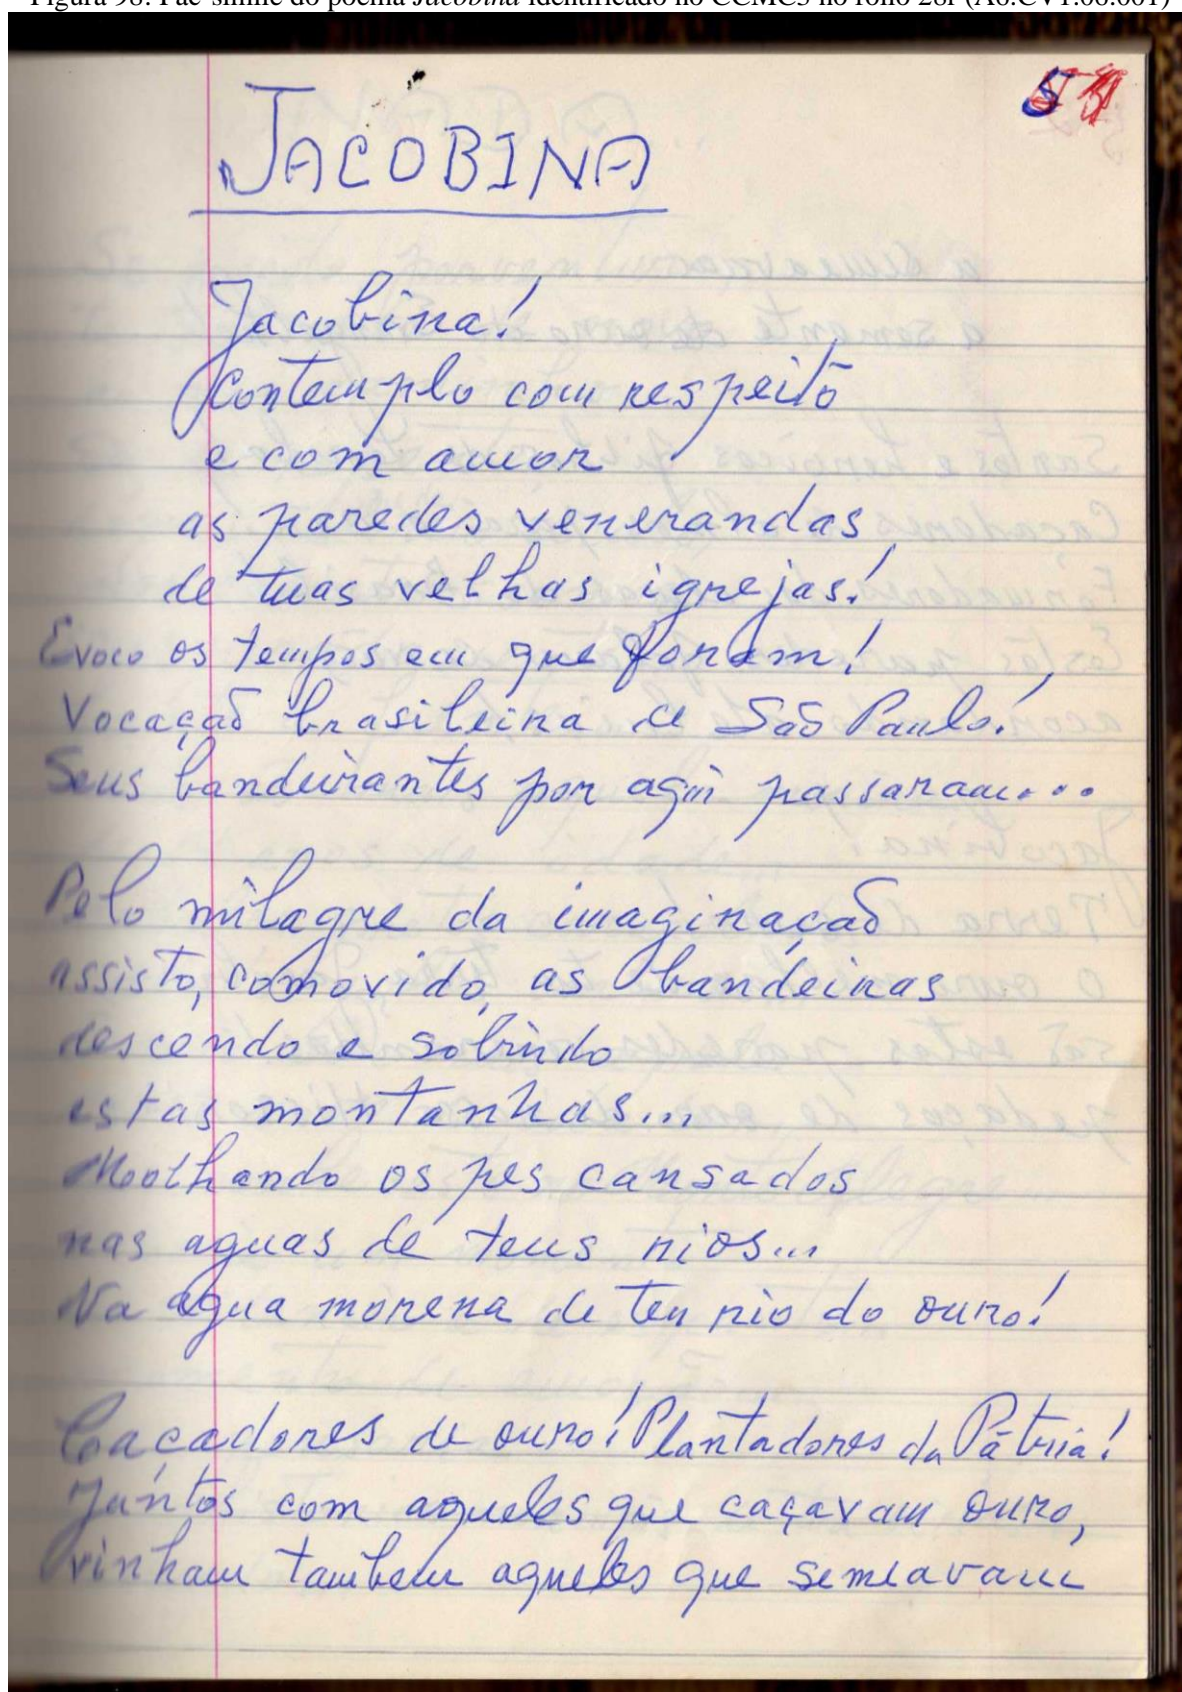 Figura 98: Fac-símile do poema Jacobina identificado no CCMC3 no fólio 28r (A6.CV1.06.001)
JACOBINA
Jacobina!
Contemplo com respeito
e com amor
as paredes venerandas
de tuas velhas igrejas!
Evoco os tempos em que foram!
Vocação brasileira de São Paulo!
Seus bandeirantes por aqui passaram...
Pelo milagre da imaginação
assisto, comovido, as bandeiras
descendo e sobindo
estas montanhas...
Moolhando os pes cansados
nas aguas de teus rios...
Na agua morena de teu rio do ouro!
Caçadores de ouro! Plantadores da Pátria!
Juntos com aqueles que caçavam ouro,
vinham tambem aqueles que semeavam